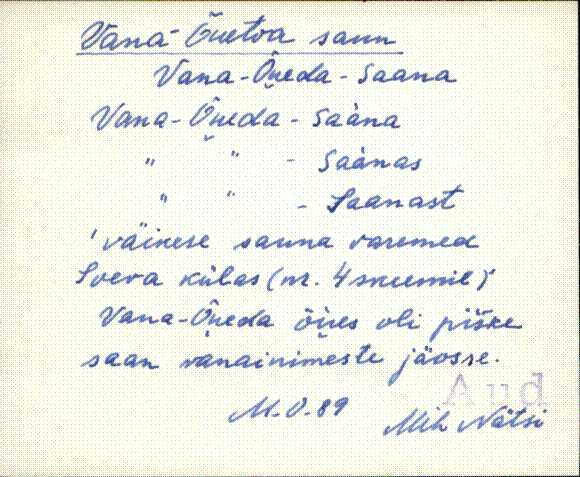 Vana-Õuetoa saun
Vana-Õueda-Saana
Vana-Õueda-Saàna
" " - Saànas
" " - Saanast
'väikese sauna varemed
Soeva külas (nr. 4 skeemil)'
Vana-Õueda õues oli piśke
saan vanainimeste jäosse.
Aud
M.O.89
Mih Nätsi